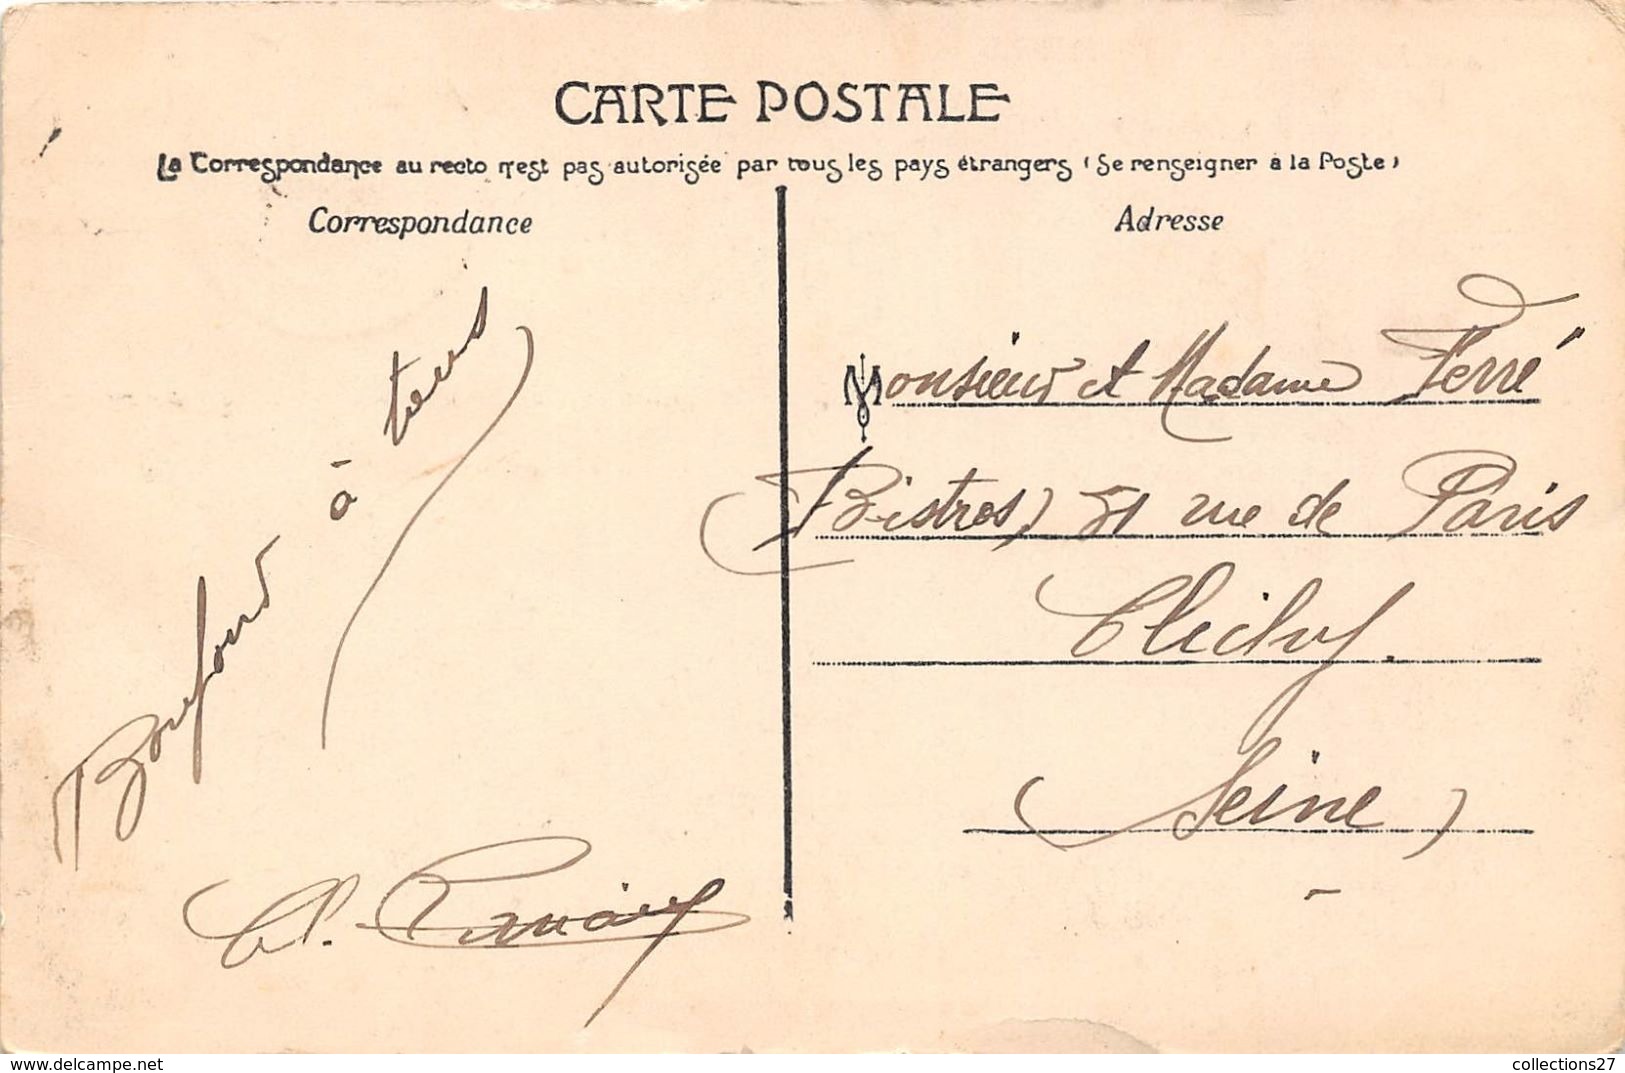 CARTE POSTALE
La Correspondance au recto n'est pas autorisée par tous les pays étrangers (Se renseigner à la Poste)
Correspondance
Adresse
Bonjour
à
tous
Monsieur et Madame Ferré
(Bistros) 51 rue de Paris
Clichy.
(Seine)
www.delcampe.net
collections27